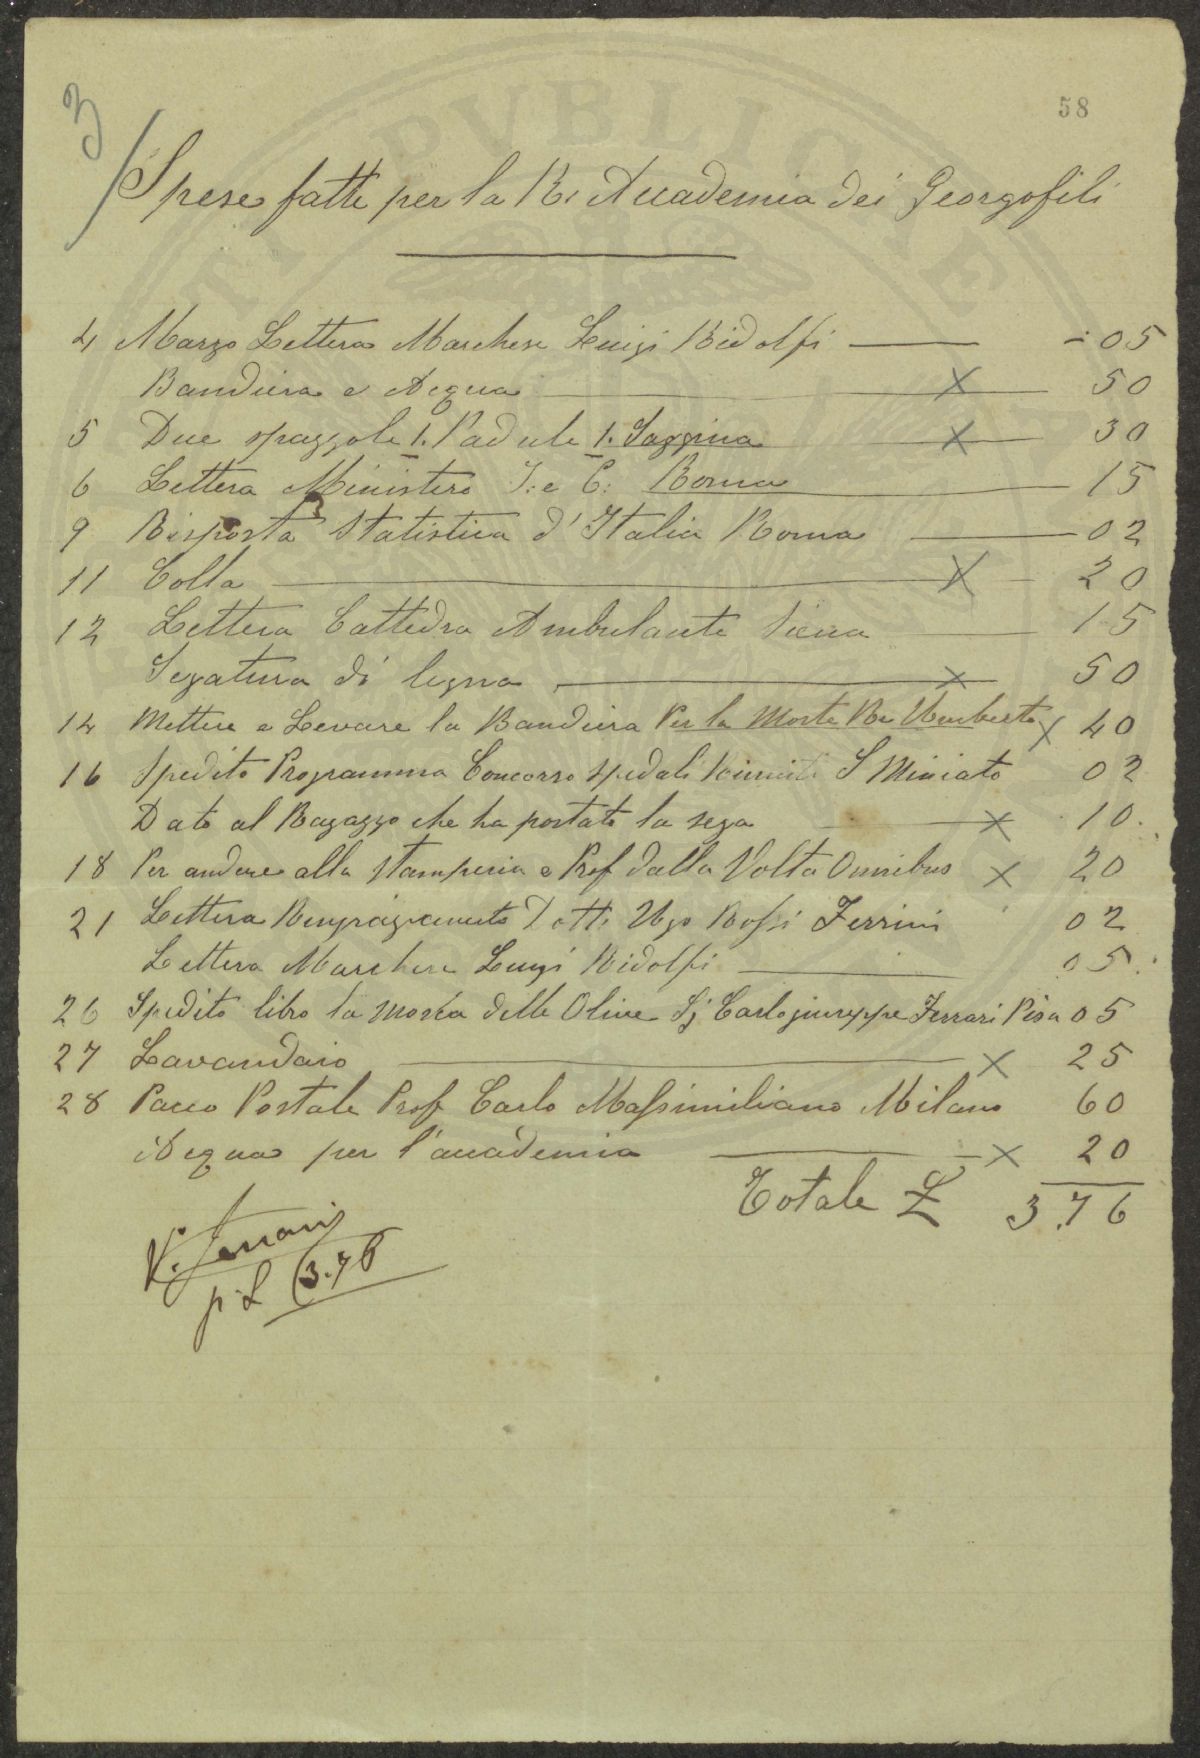 58
3
Spese fatte per la R. Accademia dei Georgofili
4 Marzo Lettera Marchese Luigi Ridolfi 05
Bandiera e Acqua x 50
5 Due spazzole 1. Padule 1. Saggina x 30
6 Lettera Ministero I: e C: Roma 15
9 Risposta Statistica d'Italia Roma 02
11 Colla x 20
12 Lettera Cattedra Ambulante Siena 15
Segatura di legna x 50
14 Mettere e Levare la Bandiera Per la Morte Re Umberto x 40
16 Spedito Programma Concorso Spedali Riuniti S Miniato 02
Dato al Ragazzo che ha portato la sega x 10.
18 Per andare alla Stamperia e Prof dalla Volta Omnibus x 20
21 Lettera Ringraziamento Dott. Ugo Rossi Ferrini 02
Lettera Marchese Luigi Ridolfi 05
26 Spedito libro la Mosca delle Olive Sj Carlo giuseppe Ferrari Pisa 05
27 Lavandaio x 25
28 Pacco Postale Prof Carlo Massimiliano Milano 60
Acqua per l'accademia x 20
Totale £ 3.76
V.
p. L (3.76
PVBLICAE